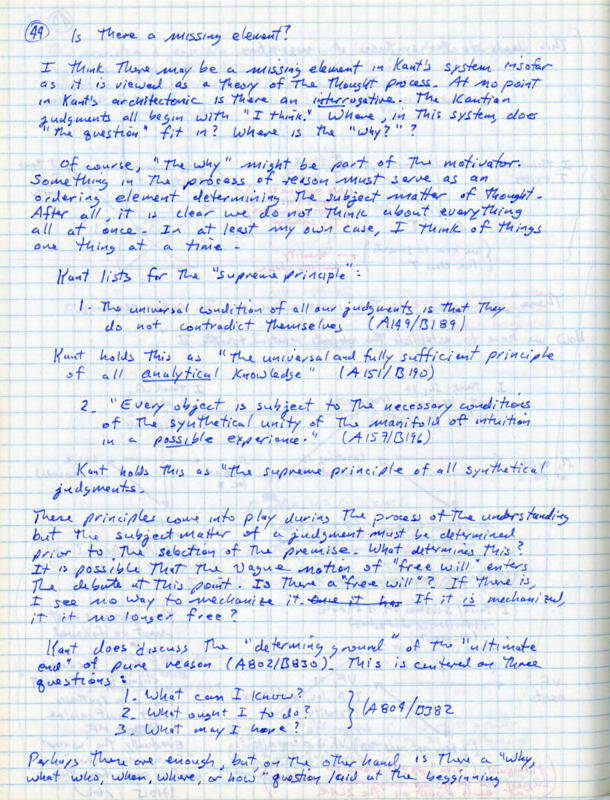 44 Is there a missing element?
I think there may be a missing element in Kant's system insofar
as it is viewed as a theory of the thought process. At no point
in Kant's architectonic is there an interrogative. The Kantian
judgments all begin with "I think." Where, in this system, does
"the question" fit in? Where is the "why?"?
Of course, "the why" might be part of the motivator.
Something in the process of reason must serve as an
ordering element determining the subject matter of thought.
After all, it is clear we do not think about everything
all at once. In at least my own case, I think of things
one thing at a time.
Kant lists for the "supreme principle":
1. The universal condition of all our judgments is that they
do not contradict themselves (A149/B189)
Kant holds this as "the universal and fully sufficient principle
of all analytical knowledge" (A151/B190)
2. "Every object is subject to the necessary conditions
of the synthetical unity of the manifold of intuition
in a possible experience." (A157/B196)
Kant holds this as "the supreme principle of all synthetical
judgments.
These principles come into play during the process of the understanding
but the subject matter of a judgment must be determined
prior to the selection of the premise. What determines this?
It is possible that the vague notion of "free will" enters
the debate at this point. Is there a "free will"? If there is,
I see no way to mechanize it. One it has If it is mechanized,
it it no longer free?
Kant does discuss the "determining ground" of the "ultimate
end" of pure reason (A802/B830). This is centered on three
questions:
1. What can I know?
2. What ought I to do? } (A804/B382
3. What may I hope?
Perhaps these are enough, but on the other hand, is there a "why,
what who, when, where, or how" question laid at the begginning